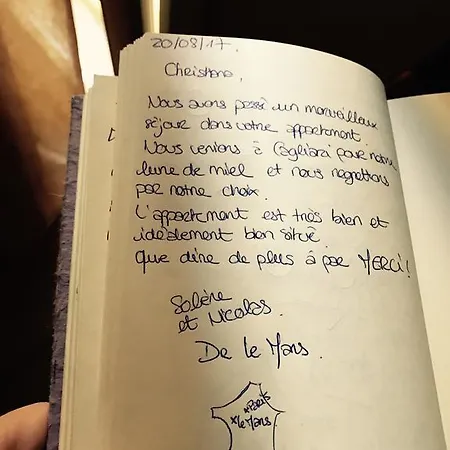 20/08/17.
Christiano,
Nous avons passé un merveilleux
séjour dans votre appartement.
Nous venions à Cagliari pour notre
lune de miel et nous regrettons
pas notre choix.
L'appartement est très bien et
idéalement bien situé.
Que dire de plus à par MERCI!
Solène
et Nicolas.
De le Mans.
x Paris
x le Mans